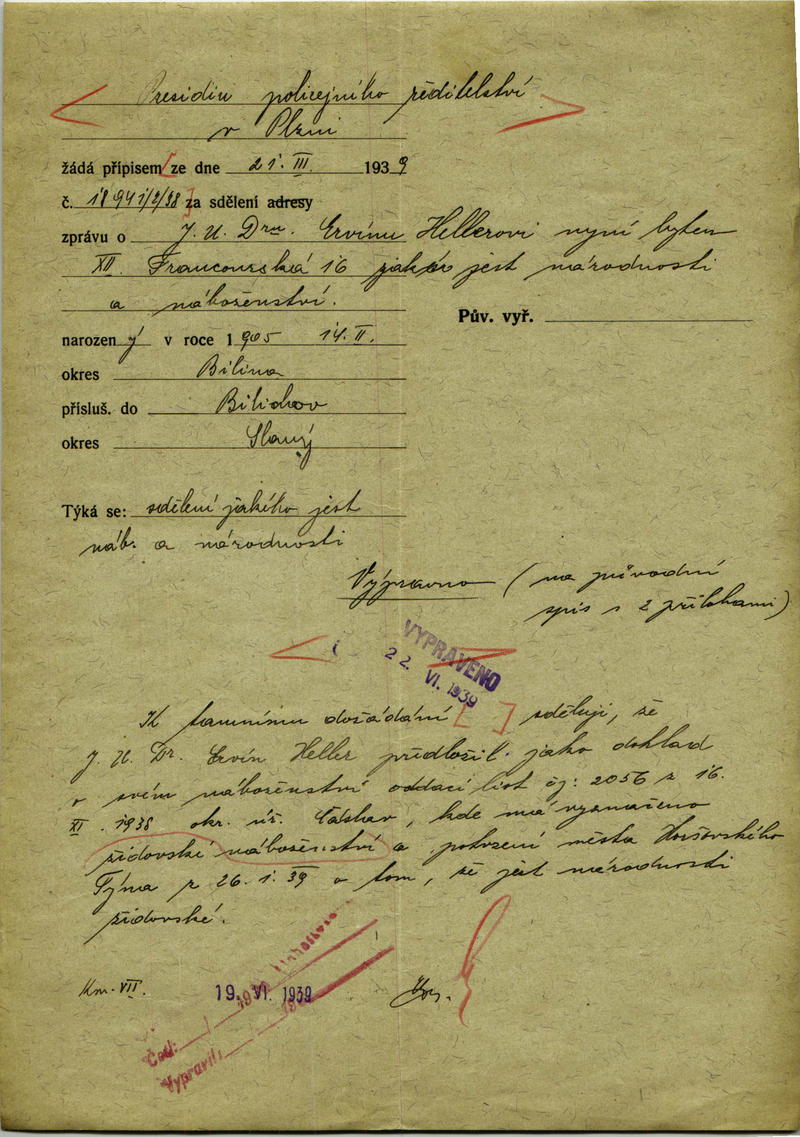 Presidiu policejního ředitelství
v Plzni
žádá přípisem [ ze dne 21. III. 1939
č. 18941/2/38 ] za sdělení adresy
zprávu o J. U. Dru. Ervínu Hellerovi nyní bytem
XII. Francouzská 16 jaké jest národnosti
a náboženství.
Pův. vyř.
narozen ý v roce 1905 14. II.
okres Bílina
přísluš. do Bilichov
okres Slaný
Týká se: sdělení jakého jest
náb. a národnosti
Výpravno (na původní
spis s 2 přílohami)
VYPRAVENO
22. VI. 1939
K tamnímu dožádání [ ] sděluji, že
J. U. Dr. Ervín Heller předložil jako doklad
o svém náboženství oddací list čj: 2056 z 16.
XI. 1938 okr. úř. Čáslav, kde má vyznačeno
židovské náboženství a potvrzení města Horšovského
Týna z 26. 1. 39 o tom, že jest národnosti
židovské.
Km. VII.
19. VI. 1939
Četl:
Vypravil: